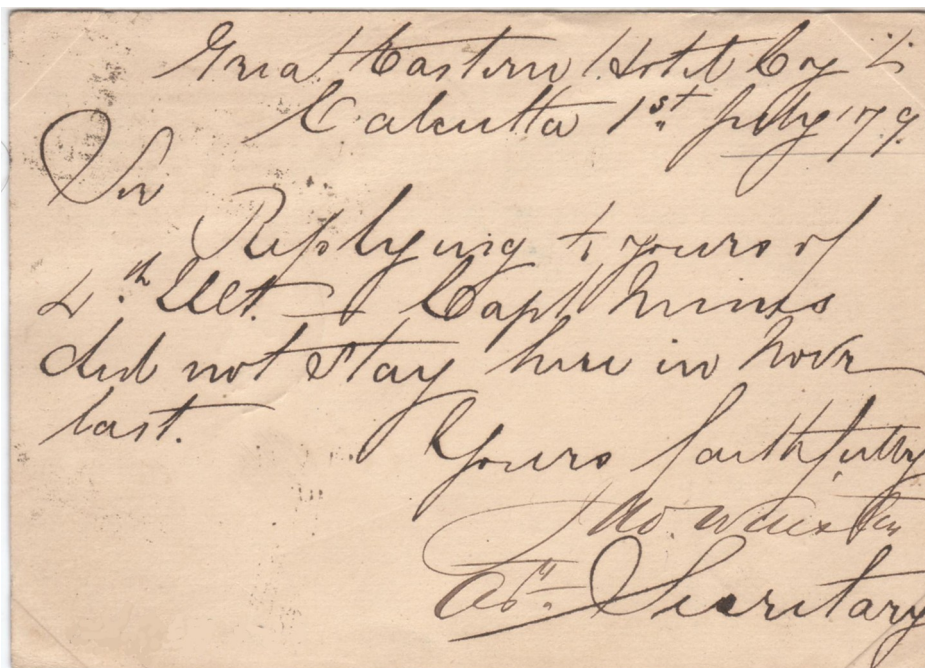 Great Eastern Hotel Coy Ld
Calcutta 1st July 79.
Sir
Replying to yours of
4th Ult. Capt
did not stay here in Novr
last.
Yours faithfully
Secretary